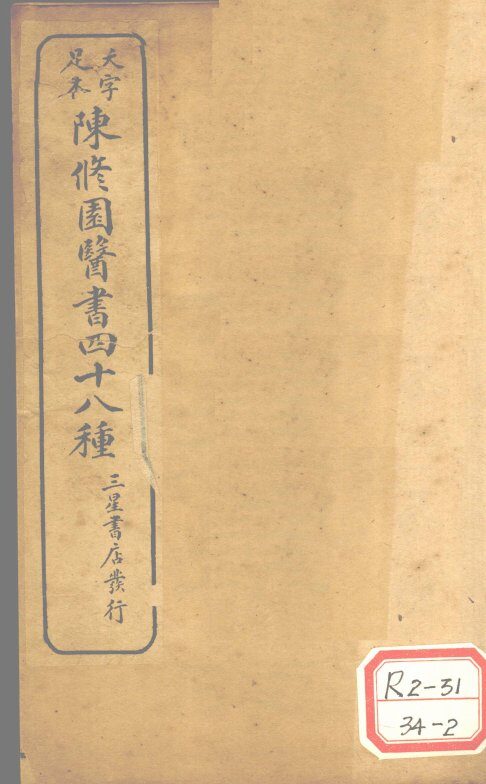 大字
足本
陳修園醫書四十八種
三星書店發行
R2-31
34-2